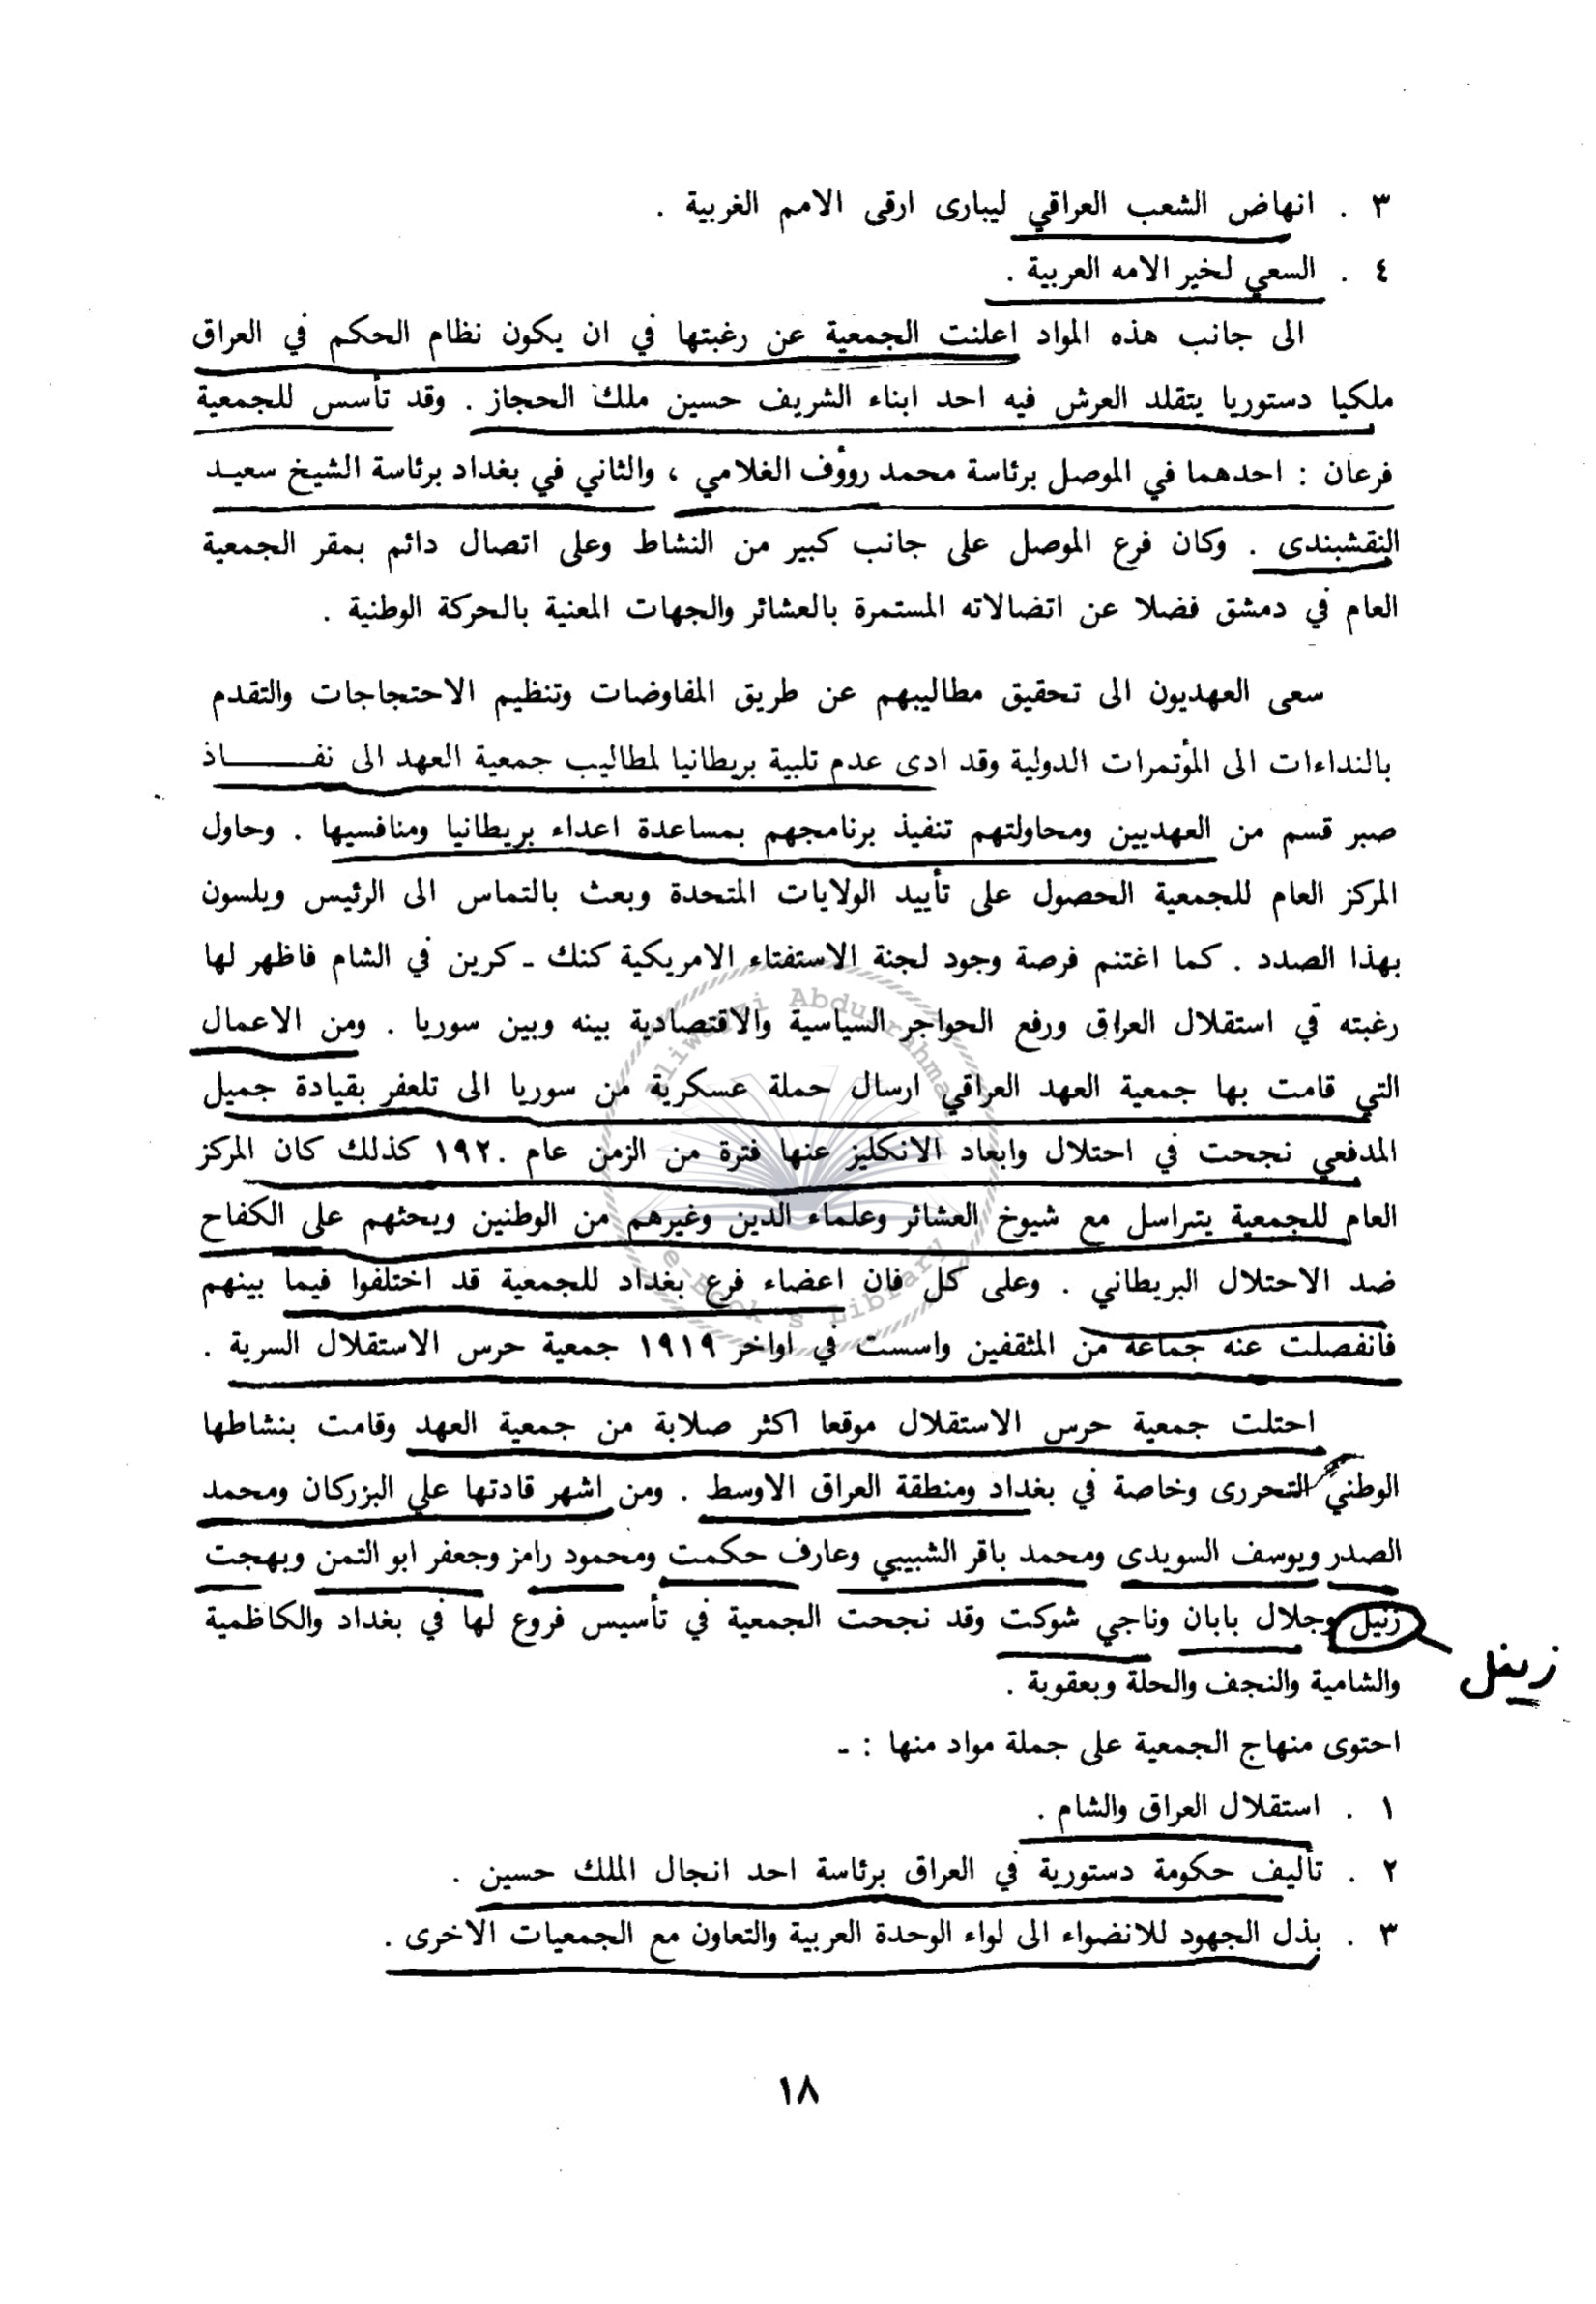 ٣ . انهاض الشعب العراقي ليبارى ارقى الامم الغربية .
٤ . السعي لخير الامه العربية .
الى جانب هذه المواد اعلنت الجمعية عن رغبتها في ان يكون نظام الحكم في العراق
ملكيا دستوريا يتقلد العرش فيه احد ابناء الشريف حسين ملك الحجاز . وقد تأسس للجمعية
فرعان : احدهما في الموصل برئاسة محمد رؤوف الغلامي ، والثاني في بغداد برئاسة الشيخ سعيد
النقشبندى . وكان فرع الموصل على جانب كبير من النشاط وعلى اتصال دائم بمقر الجمعية
العام في دمشق فضلا عن اتضالاته المستمرة بالعشائر والجهات المعنية بالحركة الوطنية .
سعى العهديون الى تحقيق مطاليبهم عن طريق المفاوضات وتنظيم الاحتجاجات والتقدم
بالنداءات الى المؤتمرات الدولية وقد ادى عدم تلبية بريطانيا لمطاليب جمعية العهد الى نفــــــاذ
صبر قسم من العهديين ومحاولتهم تنفيذ برنامجهم بمساعدة اعداء بريطانيا ومنافسيها . وحاول
المركز العام للجمعية الحصول على تأييد الولايات المتحدة وبعث بالتماس الى الرئيس ويلسون
بهذا الصدد . كما اغتنم فرصة وجود لجنة الاستفتاء الامريكية كنك ـ كرين في الشام فاظهر لها
رغبته في استقلال العراق ورفع الحواجر السياسية والاقتصادية بينه وبين سوريا . ومن الاعمال
التي قامت بها جمعية العهد العراقي ارسال حملة عسكرية من سوريا الى تلعفر بقيادة جميل
المدفعي نجحت في احتلال وابعاد الانكليز عنها فترة من الزمن عام ١٩٢٠ كذلك كان المركز
العام للجمعية يتراسل مع شيوخ العشائر وعلماء الدين وغيرهم من الوطنين ويحثهم على الكفاح
ضد الاحتلال البريطاني . وعلى كل فان اعضاء فرع بغداد للجمعية قد اختلفوا فيما بينهم
فانفصلت عنه جماعة من المثقفين واسست في اواخر ١٩١٩ جمعية حرس الاستقلال السرية .
احتلت جمعية حرس الاستقلال موقعا اكثر صلابة من جمعية العهد وقامت بنشاطها
الوطني التحررى وخاصة في بغداد ومنطقة العراق الاوسط . ومن اشهر قادتها علي البزركان ومحمد
الصدر ويوسف السويدى ومحمد باقر الشبيبي وعارف حكمت ومحمود رامز وجعفر ابو التمن وبهجت
زنيل وجلال بابان وناجي شوكت وقد نجحت الجمعية في تأسيس فروع لها في بغداد والكاظمية
زينل
والشامية والنجف والحلة وبعقوبة .
احتوى منهاج الجمعية على جملة مواد منها : ـ
١ . استقلال العراق والشام .
٢ . تأليف حكومة دستورية في العراق برئاسة احد انجال الملك حسين .
٣ . بذل الجهود للانضواء الى لواء الوحدة العربية والتعاون مع الجمعيات الاخرى .
١٨